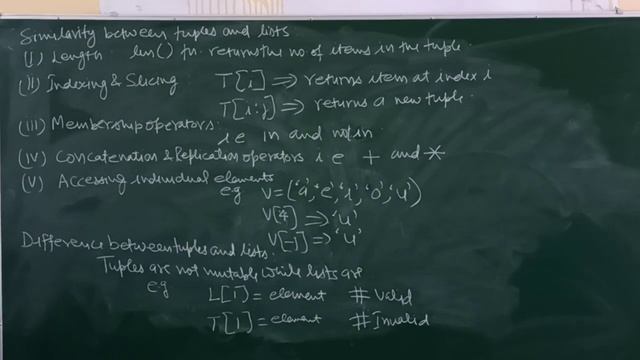 Similarity between tuples and lists
(i) Length len() fn. returns the no of items in the tuple.
(ii) Indexing & Slicing T[i] ⇒ returns item at index i
T[i:j] ⇒ returns a new tuple.
(iii) Membership operators.
i e in and not in.
(iv) Concatenation & Replication operators i e + and *
(v) Accessing individual elements
e.g V = ('a', 'e', 'i', 'o', 'u')
V[4] ⇒ 'u'
V[-1] ⇒ 'u'
Difference between tuples and lists.
Tuples are not mutable while lists are
e g L[i] = element # Valid
T[i] = element # Invalid